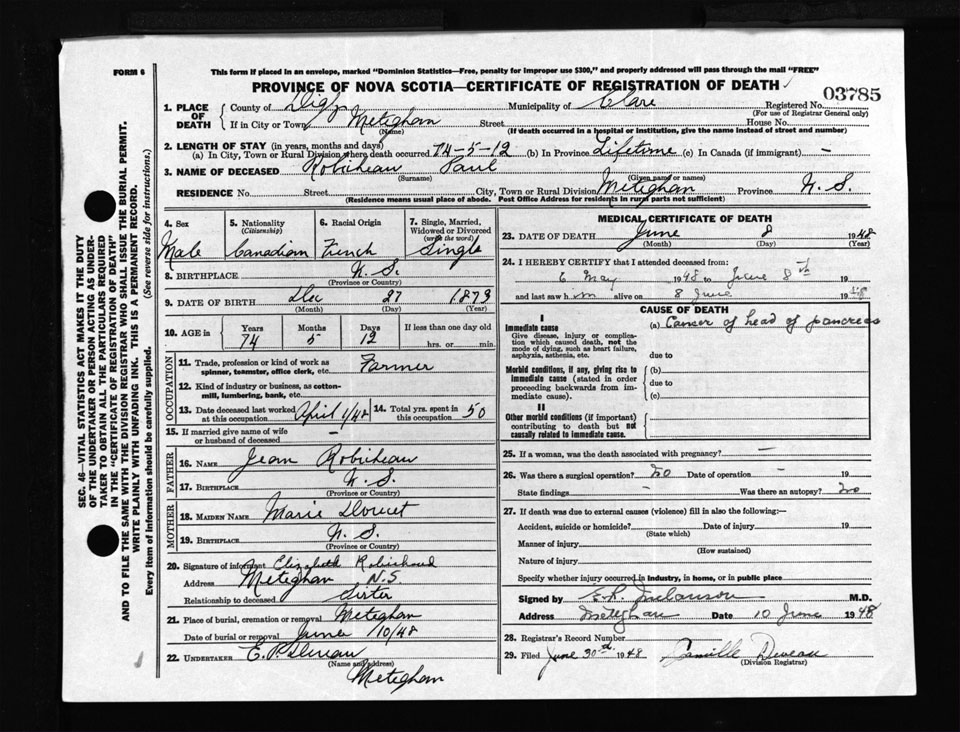 FORM 6
This form if placed in an envelope, marked "Dominion Statistics—Free, penalty for improper use $300," and properly addressed will pass through the mail "FREE"
PROVINCE OF NOVA SCOTIA—CERTIFICATE OF REGISTRATION OF DEATH
03785
1. PLACE OF DEATH County of Digby Municipality of Clare Registered No.
(For use of Registrar General only)
If in City or Town Meteghan Street House No.
(Name) (If death occurred in a hospital or institution, give the name instead of street and number)
2. LENGTH OF STAY (in years, months and days)
(a) In City, Town or Rural Division where death occurred 74-5-12 (b) In Province Lifetime (c) In Canada (if immigrant) -
3. NAME OF DECEASED Robicheau Paul
(Surname) (Given name or names)
RESIDENCE No. Street City, Town or Rural Division Meteghan Province N.S.
(Residence means usual place of abode. Post Office Address for residents in rural parts not sufficient)
4. Sex 5. Nationality (Citizenship) 6. Racial Origin 7. Single, Married, Widowed or Divorced (write the word)
Male Canadian French Single
8. BIRTHPLACE N.S.
(Province or Country)
9. DATE OF BIRTH Dec 27 1873
(Month) (Day) (Year)
10. AGE in Years Months Days If less than one day old
74 5 12 hrs. or min.
OCCUPATION
11. Trade, profession or kind of work as spinner, teamster, office clerk, etc. Farmer
12. Kind of industry or business, as cotton-mill, lumbering, bank, etc.
13. Date deceased last worked at this occupation April 1/48 14. Total yrs. spent in this occupation 50
15. If married give name of wife or husband of deceased -
FATHER
16. NAME Jean Robicheau
17. BIRTHPLACE N.S.
(Province or Country)
MOTHER
18. MAIDEN NAME Marie Doucet
19. BIRTHPLACE N.S.
(Province or Country)
20. Signature of informant Elizabeth Robichaud
Address Meteghan N.S
Relationship to deceased Sister
21. Place of burial, cremation or removal Meteghan
Date of burial or removal June /10/48
22. UNDERTAKER E.P. Deveau
(Name and address)
Meteghan
MEDICAL CERTIFICATE OF DEATH
23. DATE OF DEATH June 8 1948
(Month) (Day) (Year)
24. I HEREBY CERTIFY that I attended deceased from:
6 May 1948 to June 8th 19
and last saw h im alive on 8 June 1948
CAUSE OF DEATH
I
Immediate cause (a) Cancer of head of pancreas
Give disease, injury or complication which caused death, not the mode of dying, such as heart failure, asphyxia, asthenia, etc.
due to
Morbid conditions, if any, giving rise to immediate cause (stated in order proceeding backwards from immediate cause).
(b)
due to
(c)
II
Other morbid conditions (if important) contributing to death but not causally related to immediate cause.
25. If a woman, was the death associated with pregnancy? —
26. Was there a surgical operation? No Date of operation - 19
State findings - Was there an autopsy? No
27. If death was due to external causes (violence) fill in also the following:—
Accident, suicide or homicide? Date of injury 19
(State which)
Manner of injury
(How sustained)
Nature of injury
Specify whether injury occurred in industry, in home, or in public place
Signed by Melanson M.D.
Address Meteghan Date 10 June 1948
28. Registrar's Record Number
29. Filed June 30th 1948 Camille Deveau
(Division Registrar)
SEC. 46—VITAL STATISTICS ACT MAKES IT THE DUTY
OF THE UNDERTAKER OR PERSON ACTING AS UNDER-
TAKER TO OBTAIN ALL THE PARTICULARS REQUIRED
IN THE "CERTIFICATE OF REGISTRATION OF DEATH"
AND TO FILE THE SAME WITH THE DIVISION REGISTRAR WHO SHALL ISSUE THE BURIAL PERMIT.
WRITE PLAINLY WITH UNFADING INK. THIS IS A PERMANENT RECORD.
Every item of Information should be carefully supplied. (See reverse side for instructions.)